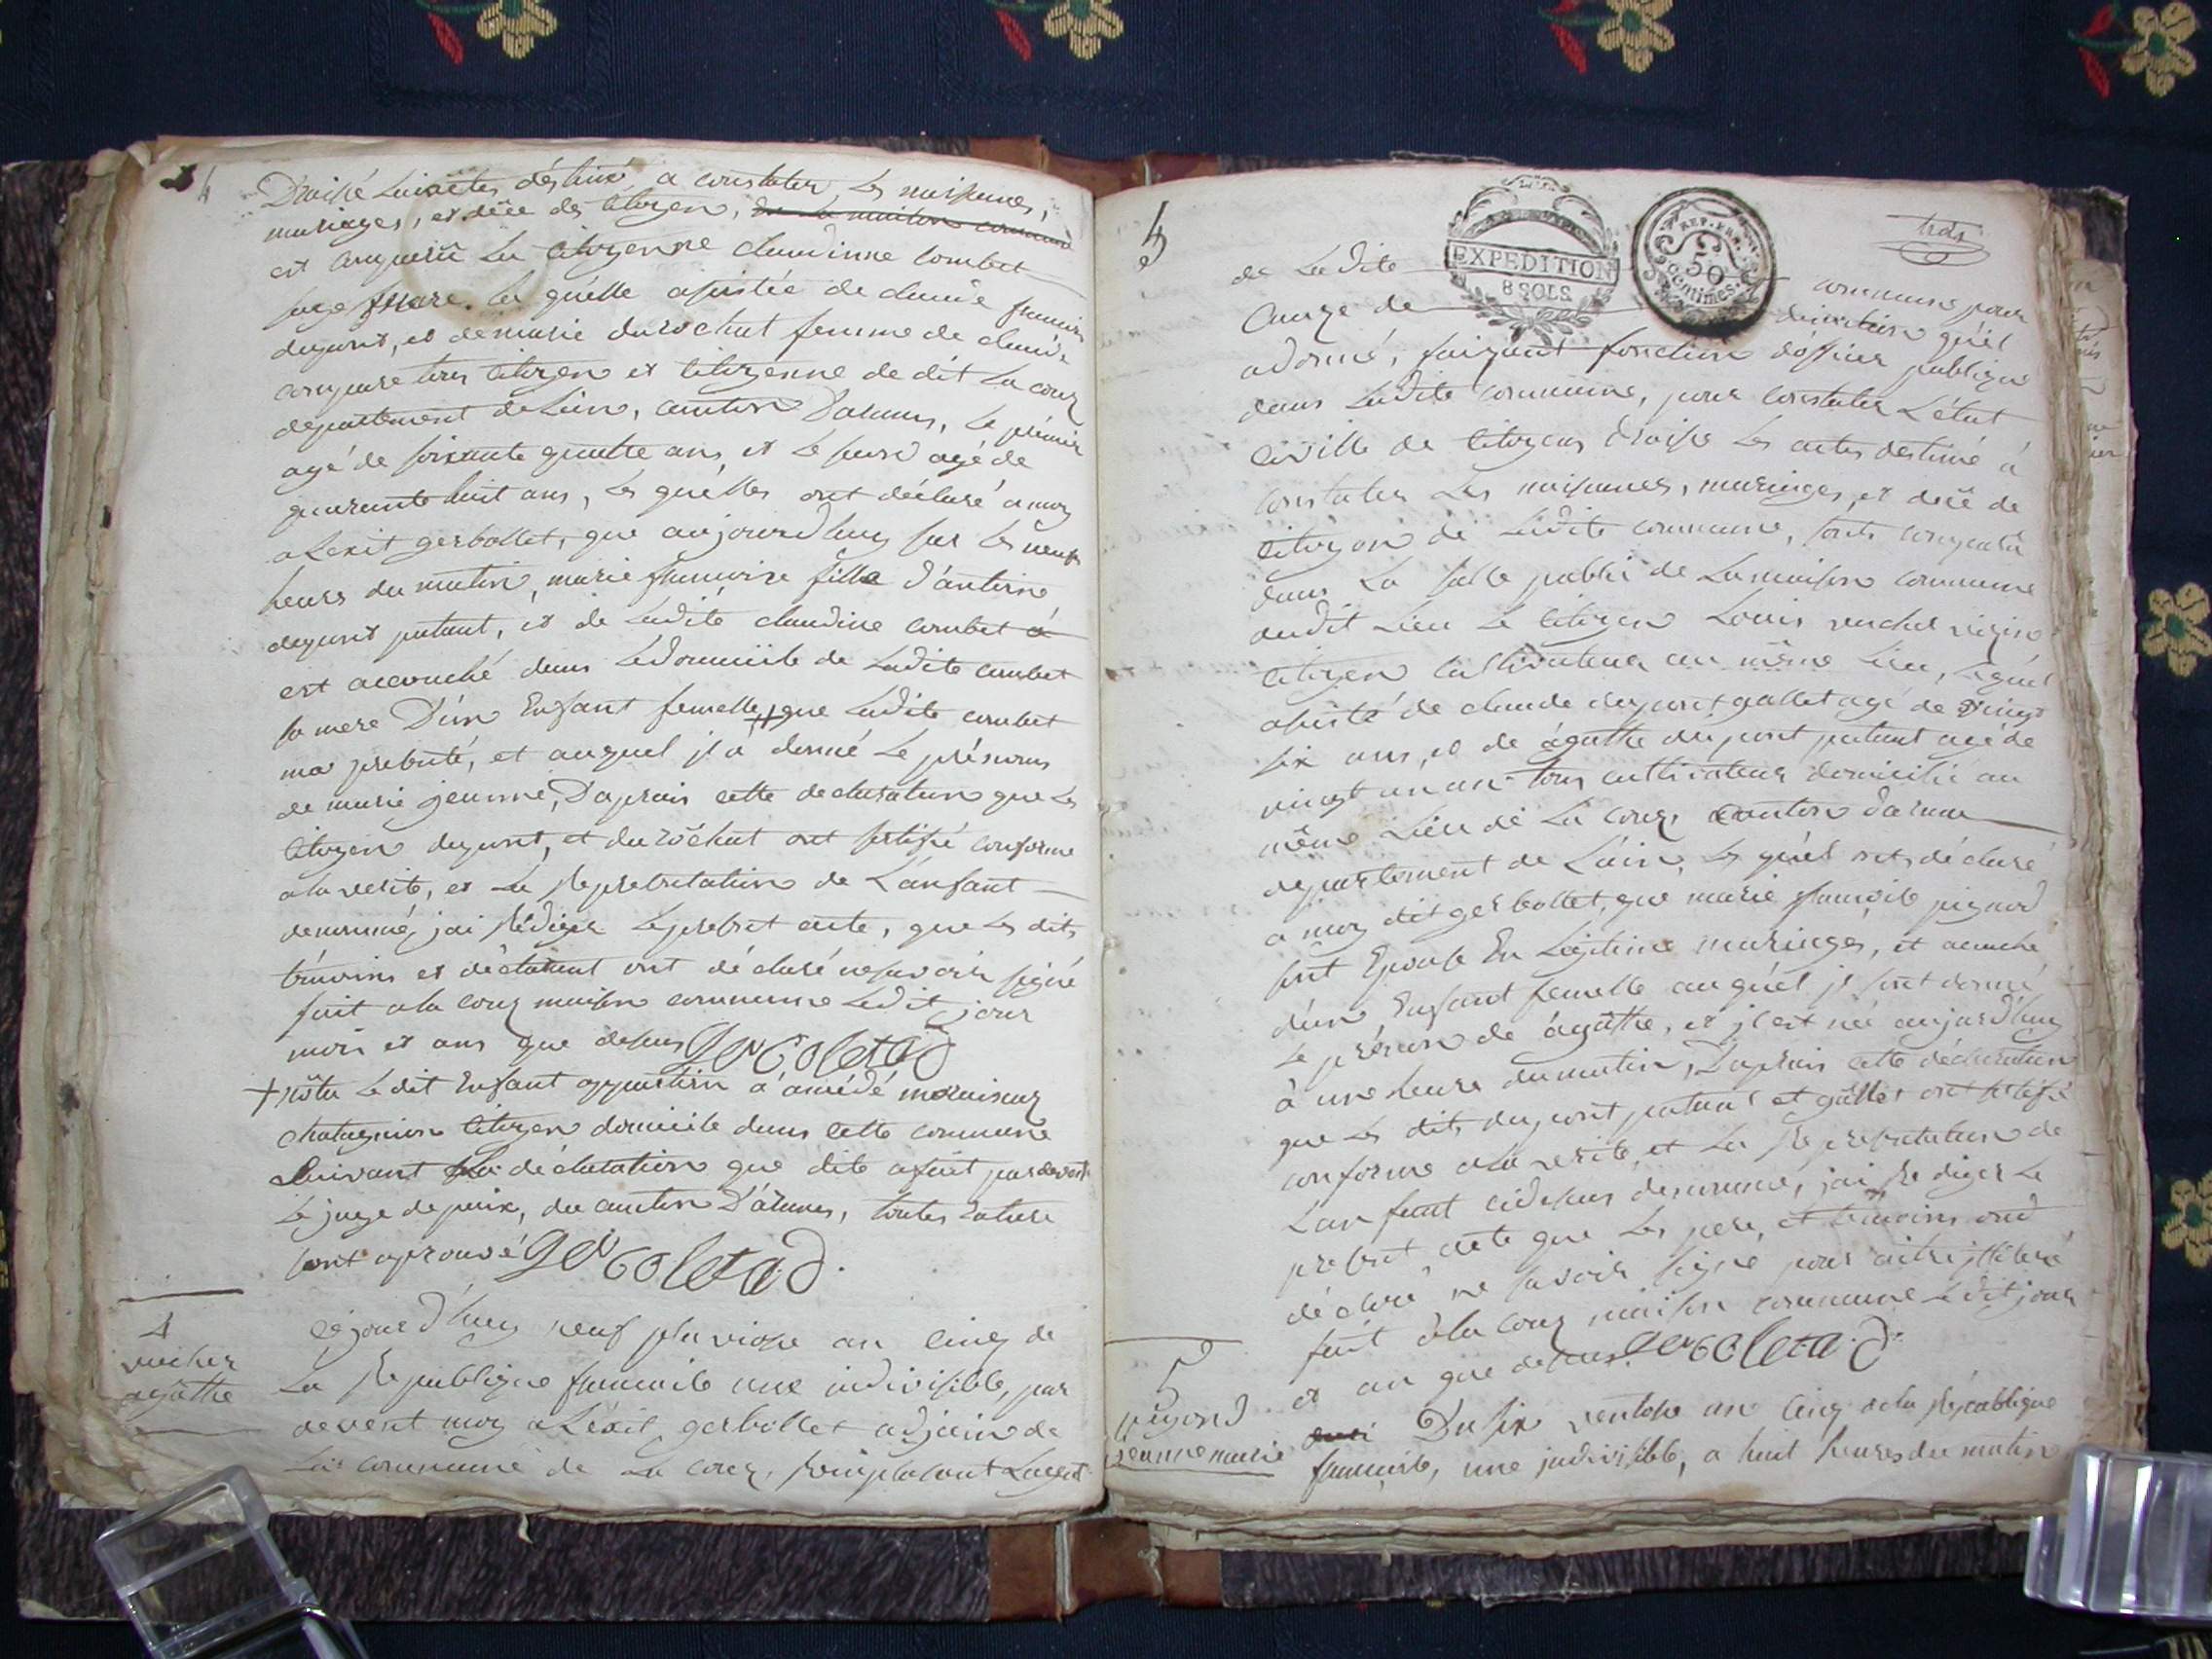 4
Draissé Luiactes déstiné a constater Les naissances,
mariages, et décé des Citoyen, de la maison commune
est comparüe La Citoyenne claudinne Combet
sage femme. La quélle asistée de claude francois
dupont, et de marie durochat femme de claude
Citoyen et Citoyenne de dit La coux
departement de Lain, canton Darmes, Le prémier
agé de soixante quattre ans, et Le segond agé de
quarante huit ans, Les quélles ont déclaré a moy
aLexit gerbollet, que aujourdhuy sur Les neufs
heurs du matin, marie francoise fille d'antoine
dupont patant, et de Ladite claudine Combet
est accouché dans Ledomiciile de Ladite combet
sa mere D'un Enfant femelle que Ladite combet
ma presenté, et auquel jl a donné Le prénoms
de marie jeanne, Daprais cette declaration que Les
Citoyen dupont, et durochat ont sertifié conforme
a la verité, et La Representation de Lanfant
denommé, jai Rédigé Le presest acte, que Les dits
témoins et déclarant ont déclaré ne savoir signé
fait a la coux maison commune Ledit jour
mois et ans que dessus
+ nota Le dit Enfant appartien a amédé
Citoyen domicile dans cette commune
Suivant La déclaration que dite a fait par devant
Le juge de paix, du canton D'armes, toutes
sont aprouvé
4
ruchet
agathe
Cejourdhuy neuf pluviose an Cinq de
La Republique francaise une indivisible, par
devent moy aLéxit gerbollet adjoin de
La commune de La coux, Remplacant Lagent
4
trois
EXPEDITION
8 SOLS
REP. FRA.
50
centimes
de Ladite commune pour
Cauze de qu'il
adonné, faizant fonction dofficier publique
dans Ladite Commune, pour Constater L'état
Civille de Citoyens Draisse Les actes destiné à
Constater Les naissances, mariages, et décé de
Citoyen de Ladite commune, sont comparu
dans La salle public de La maison commune
audit Lieu Le Citoyen Louis ruchet
Citoyen Cultivateur au même Lieu, Lequél
asisté de claude dupont gallet agé de vingt
six ans, et de agathe dupont patant agé de
vingt un an tous cultivateur domicilié au
même Lieu de La coux, canton darme
departement de Lain, Les quél ont déclaré
a moy dit gerbollet, que marie francoise pignod
sont Epouse En Légitime mariages, et acouché
d'un Enfant femelle auquél jl sont donné
Le prénom de agathe, et jl est née aujourdhuy
à une heure du matin, Daprais cette déclaration
que Les dits dupont patant et gallet ont sertifié
conforme a La verité, et La Representation de
Lanfant cidessus denommé, jai Rediger Le
presest acte que Les pere, et témoins ond
déclaré ne savoir signé pour aitre jlliteré
fait à la coux maison commune Ledit jour
et an que dessus
5
pignod
jeanne marie
Du six ventose an Cinq de la République
francaise, une jndivisible, a huit heures du matin